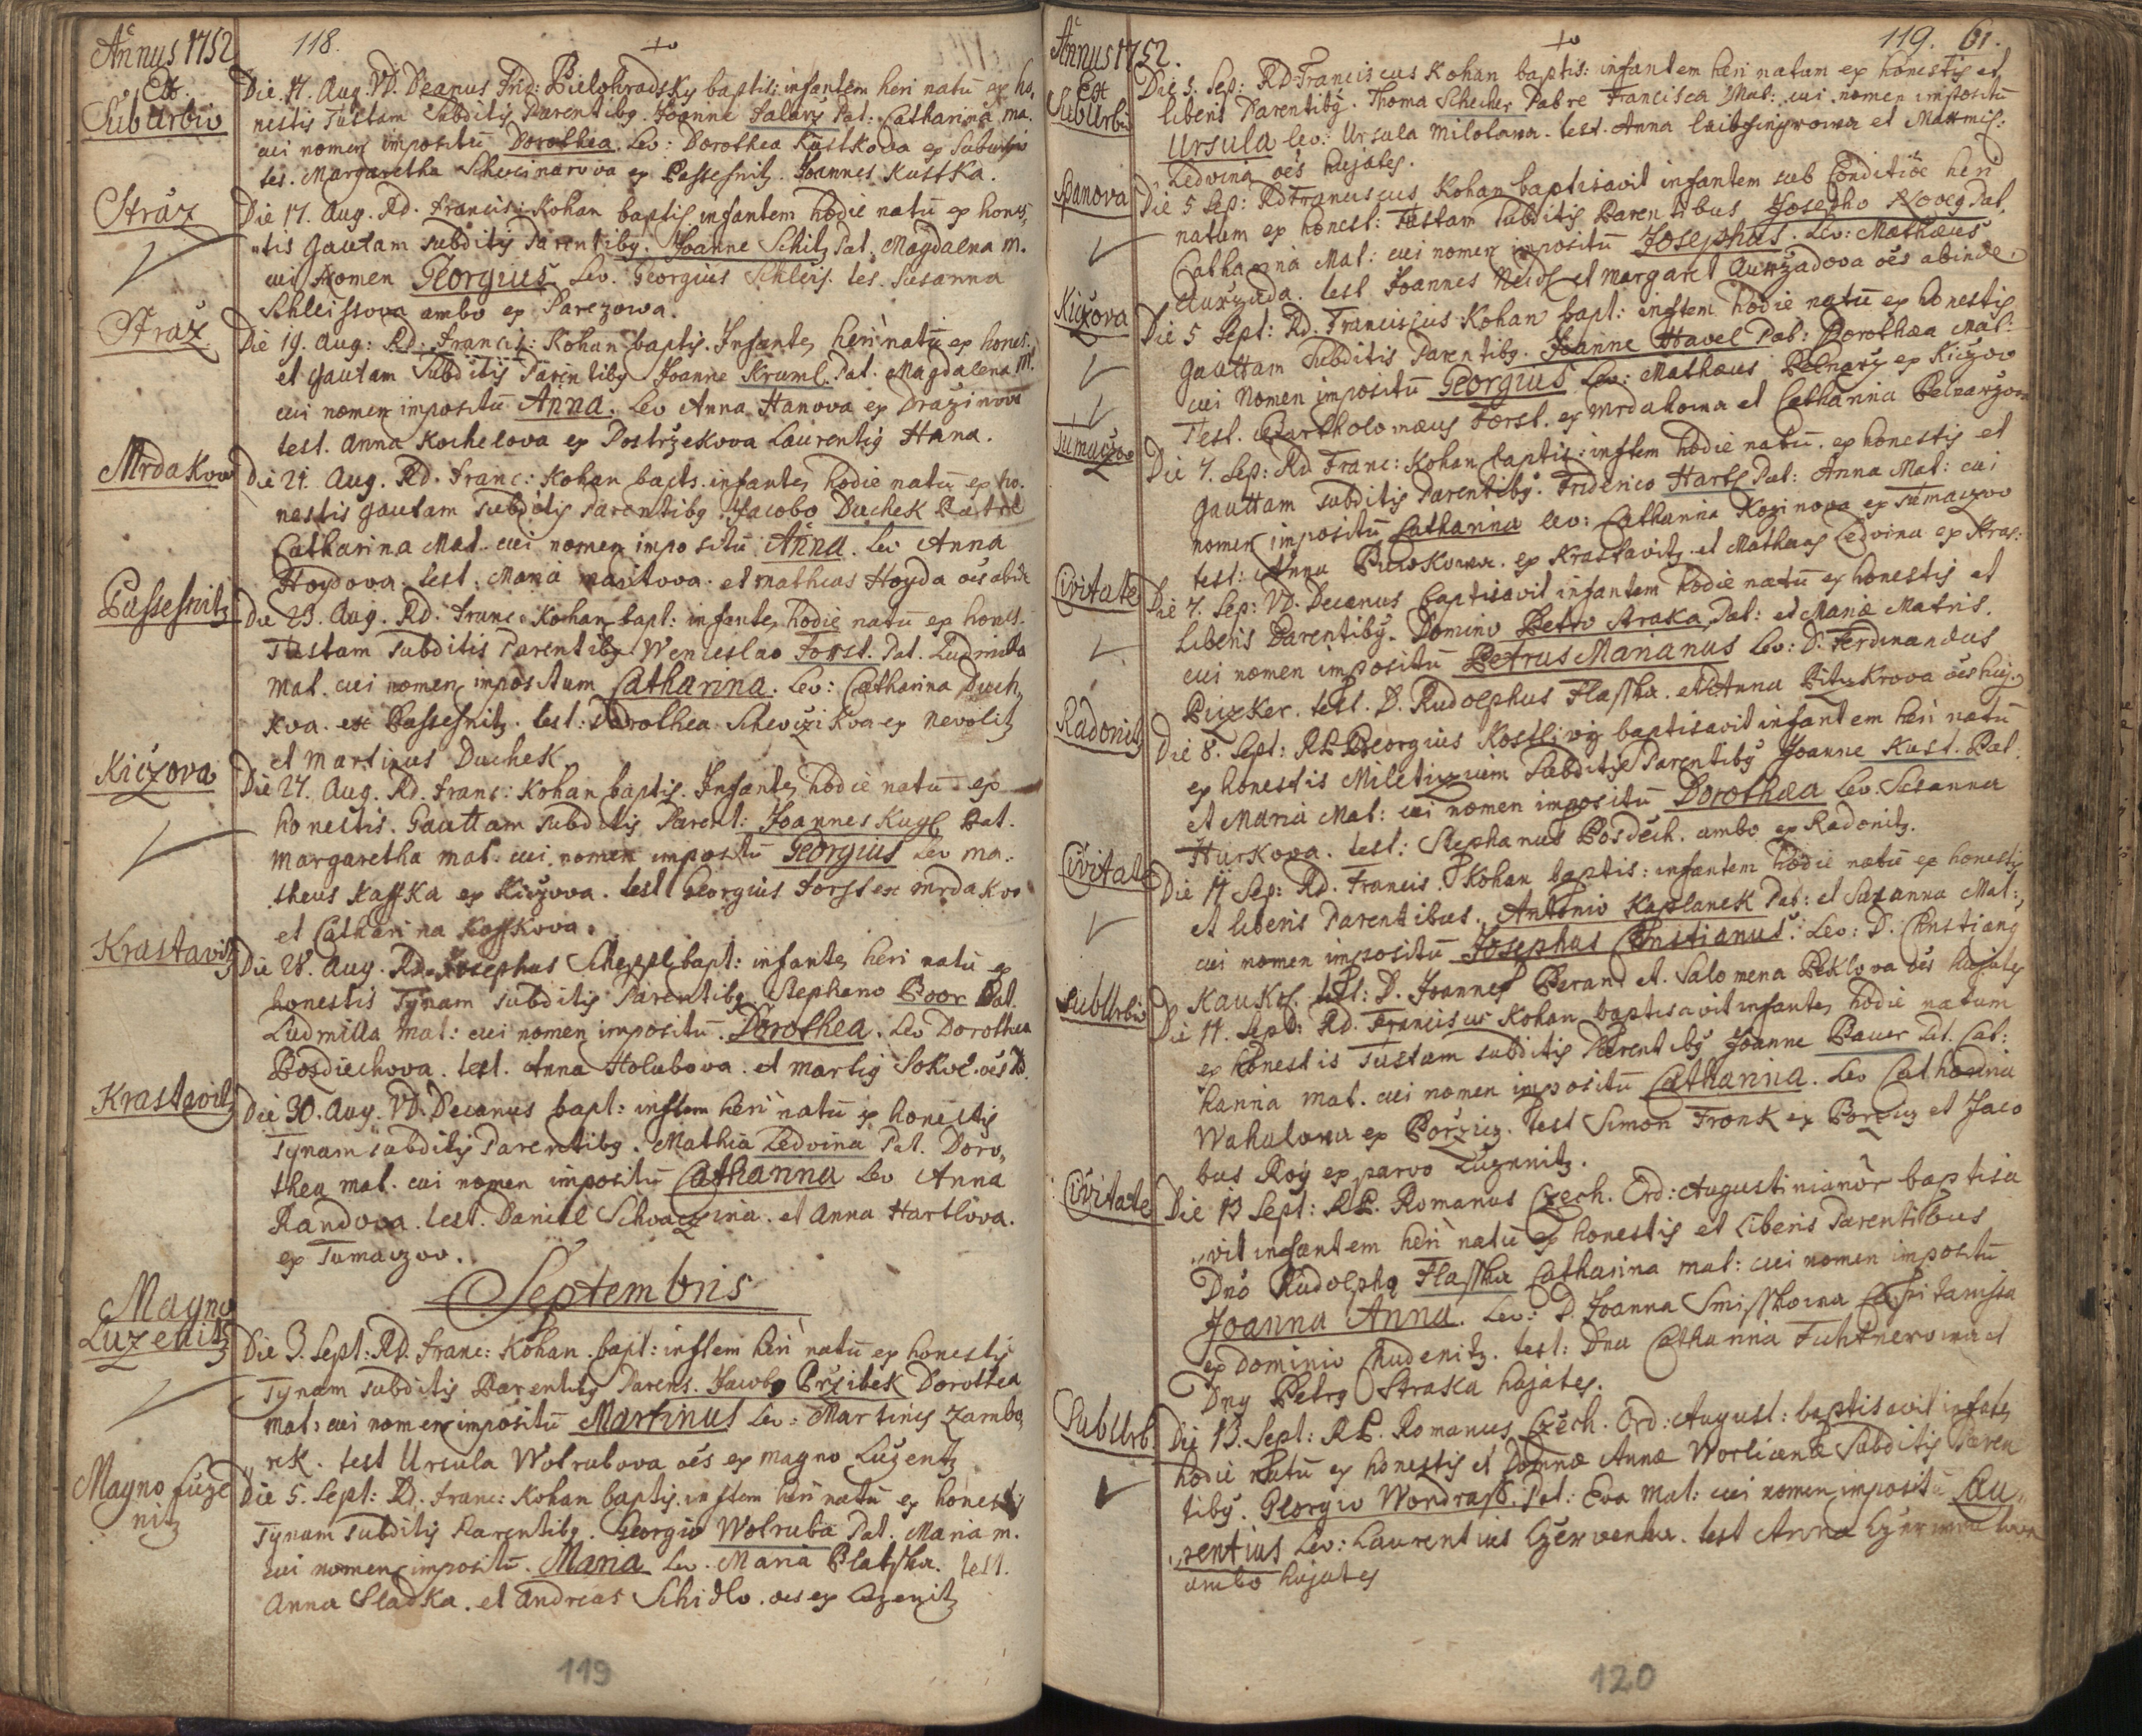 Annus 1752
118.
Ex
Suburbio
Die 17. Aug. VD. Deanus Frid: Bielohradsky baptis: infantem heri natū ex ho,
nestis Tustam Subditis Parentibg. Joanne Salary Pat: Catharina ma.
cui nomen impositū Dorothea. Lev: Dorothea Kustkova ex Suburbio
tes. Margaretha Schwinarova ex Passesnitz. Joannes Kustka.
Straz
Die 17. Aug. Rd. Francis: Kohan baptis infantem hodie natū ex hones,
„tis Gautam subditis Parentibg. Joanne Schitz Pat. Magdalena m.
cui Nomen Georgius. Lev. Georgius Schleis. tes. Susanna
Schleissova ambo ex Parezowa.
Straz
Die 19. Aug: Rd: Francis: Kohan baptis. Infante, heri natū ex hones.
et Gautam Subditis Parentibg Joanne Kruml. Pat. Magdalena M.
cui nomen impositū Anna. Lev Anna Hanova ex Drazinova
test. Anna Kochelova ex Postrzekova Laurentig Hana.
Mrdakow
Die 21. Aug. Rd. Franc: Kohan bapts. infante, hodie natū ex ho.
nestis gautam subditis Parentibg. Jacobo Duchek Patre
Catharina Mat. cui nomen impositū Anna. Lev Anna
Hoydova. test. Maria maritova. et Mathias Hoyda oēs abide
Passesnitz
Die 23. Aug. Rd. Franc. Kohan bapt: infante, hodie natū ex hones.
Tustam subditis Parentibg Wenceslao Forst. Pat. Ludmilla
Mat. cui nomen impositum Catharina. Lev: Catharina Duch,
kva. ex Passesnitz. test: Dorothea Schewczikva ex Nevolitz
et Martinus Duchek.
Kiczova
Die 27. Aug. Rd. Franc: Kohan baptis. Infante, hodie natū ex
honestis. Gauttam subditis Parent: Joannes Kugl Pat.
Margaretha mat. cui nomen impositū Georgius Lev Ma:
theus Kasska ex Kiczova. test Georgius Forst ex Mrdakvo
et Catharina Kasskova.
Krastavitz
Die 28. Aug. Rd. Josephus Scheppl bapt: infante, heri natū ex
honestis Tynam subditis Parentibg. Stephano Boor Pat.
Ludmilla Mat: cui nomen impositū. Dorothea. Lev Dorothea
Bosdiechova. test. Anna Holubova. et Martig Sokol. oēs Ad.
Krastavitz
Die 30. Aug. VD. Decanus bapt: inftem heri natū ex honestis
Tynam subditis Parentibg. Mathia Ledvina Pat. Doro,
thea mat. cui nomen impositū Catharina Lev Anna
Randova. test. Daniel Schvaczina. et Anna Hartlova.
ex Tumaczov.
Septembris
Magno
Luzenitz
Die 3. Sept: Rd. Franc: Kohan. bapt: inftem heri natū ex honestis
Tynam subditis Parentibg Parens. Jacobo Przibek Dorothea
Mat: cui nomen impositū Martinus Lev: Martinus Zambo,
„rek. test Ursula Wolrubova oēs ex magno Luzenitz
Magno Luze
nitz
Die 5. Sept: Rd. Franc: Kohan baptis. inftem heri natū ex honestis
Tynam subditis Parentibg. Georgio Wolruba Pat. Maria m.
cui nomen impositū. Maria Lev. Maria Platska. test.
Anna Sladka. et Andreas Schidlo. oes ex Luzenitz
119
Annus 1752.
119. 61.
Ex
SubUrbio
Die 3. Sep: RD Franciscus Kohan baptis: infantem heri natum ex honestis et
liberis Parentibg. Thoma Schecher Patre Francisca Mat: cui nomen impositū
Ursula Lev: Ursula Milotowa. test. Anna et
Ledvina oēs hujates.
Spanova
Die 5 Sep: Rd Franciscus Kohan baptisavit infantem sub Conditiōe heri
natum ex honest: Tustam subditis Parentibus Josepho Novy Pat.
Catharina Mat: cui nomen impositū Josephus. Lev: Mathæus
Aurzada. test Joannes et Margaret Aurzadova oēs abinde.
Kiczova
Die 5 Sept: Rd. Franciscus Kohan bapt: inftem hodie natū ex honestis
Gauttam Subditis Parentibg. Joanne Havel Pat: Dorothæa Mat:
cui Nomen impositū Georgius Lev: Mathæus Pelnarz ex Kiczow
Test. Bartholomæus Forst. ex Mrdakowa et Catharina Pelnarzova
Tumaczov
Die 7. Sep: Rd Franc: Kohan baptis: inftem hodie natū. ex honestis et
Gauttam subditis Parentibg. Friderico Hartl Pat: Anna Mat: cui
nomen impositū Catharina Lev: Catharina Kozinova ex Tumaczov
test: Anna ex Krastavitz. et Mathias Ledvina ex Kras:
Civitate
Die 7. Sep: VD. Decanus baptisavit infantem hodie natū ex honestis et
liberis Parentibg. Domino Petro Straka Pat: et Maria Matris.
cui nomen impositū Petrus Marianus Lev: D. Ferdinandus
Puzker. test. D. Rudolphus Flasska. et Anna oēs huj:
Radonitz
Die 8. Sept: RP Georgius Kostliwy baptisavit infantem heri natū
ex honestis Subditis Parentibg Joanne Kust. Pat.
et Maria Mat: cui nomen impositū Dorothæa Lev. Susanna
Hurkova. test: Stephanus Bosdech. ambo ex Radonitz.
Civitate
Die 11 Sep: Rd. Francis. Kohan baptis: infantem hodie natū ex honestis
et liberis Parentibus. Antonio Kaplanek Pat: et Suzanna Mat:,
cui nomen impositū Josephus Christianus. Lev: D. Christiang
Kaukol. test: D. Joannes Beran et. Salomena Peklova oēs hujates
SubUrbio
Die 11. Sept: Rd. Franciscus Kohan baptisavit infante, hodie natum
ex honestis Tustam subditis Parentibg Joanne Bauer Pat. Cat:
harina mat. cui nomen impositū Catharina. Lev Catharina
Wakulowa ex Porzicz. test Simon Fronk ex Porzicz et Jaco
bus Roy ex parvo Luzenitz.
Civitate
Die 13 Sept: RP. Romanus Czech. Ord: Augustinianōr baptisa
„vit infantem heri natū ex honestis et Liberis Parentibus
Dno Rudolpho Flasska Catharina mat: cui nomen impositū
Joanna Anna. Lev: D. Joanna Smisskowa Capitanissa
ex Dominio Chudenitz. test: Dna Catharina Fuhtnerowa et
Dng Petrg Straka hujates.
SubUrb.
Die 13. Sept: RP. Romanus Czech. Ord: August: baptisavit infante,
hodie natū ex honestis et Domnæ Annæ Worliciena Subditis Paren
tibg. Georgio Wondrass. Pat: Eva Mat: cui nomen impositū Lau„
„rentius Lev: Laurentius Czerwenka. test Anna
ambo hujates
120